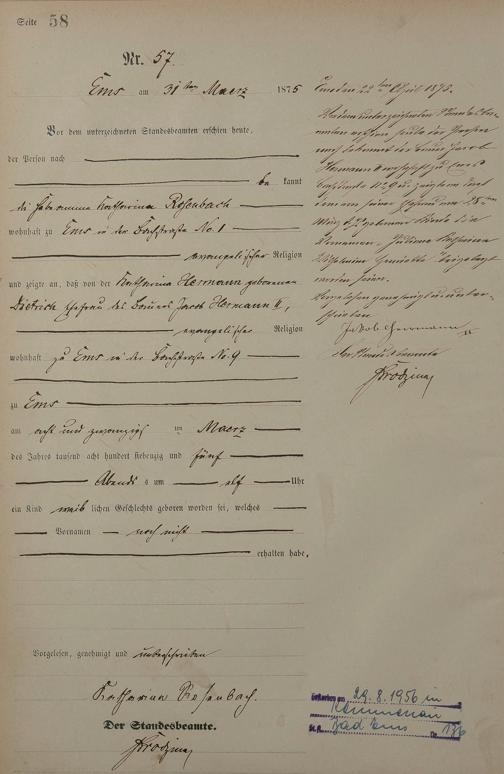 Seite 58
Nr. 57.
Ems am 31 ten Maerz 1875
Vor dem unterzeichneten Standesbeamten erschien heute,
der Person nach
be kannt
die Hebamme Katharina Rosenbach
wohnhaft zu Ems in der Bachstraße No. 1
evangelischer Religion
und zeigte an, daß von der Katharina Hermann geborenen
Dietrich Ehefrau des Jacob Hermann II,
evangelischer Religion
wohnhaft zu Ems in der Bachstraße No. 9
zu Ems
am acht und zwanzigsten Maerz
des Jahres tausend acht hundert siebenzig und fünf
Abends s um elf Uhr
ein Kind weib lichen Geschlechts geboren worden sei, welches
Vornamen noch nicht
erhalten habe.
Vorgelesen, genehmigt und unterschrieben
Katharina Rosenbach.
Der Standesbeamte.
Ems den 22 ten April 1875.
Vor dem unterzeichneten Standesbe-
amten heute der Person
nach bekannt der Jacob
Hermann II wohnhaft zu Ems
Bachstraße No 9 und
am 28 ten
März
Wilhelmine Henriette beigelegt
worden seien.
Vorgelesen genehmigt und unter-
schrieben
Jakob Herrmann II
Der Standesbeamte
29.8.1956 in
Bad Ems